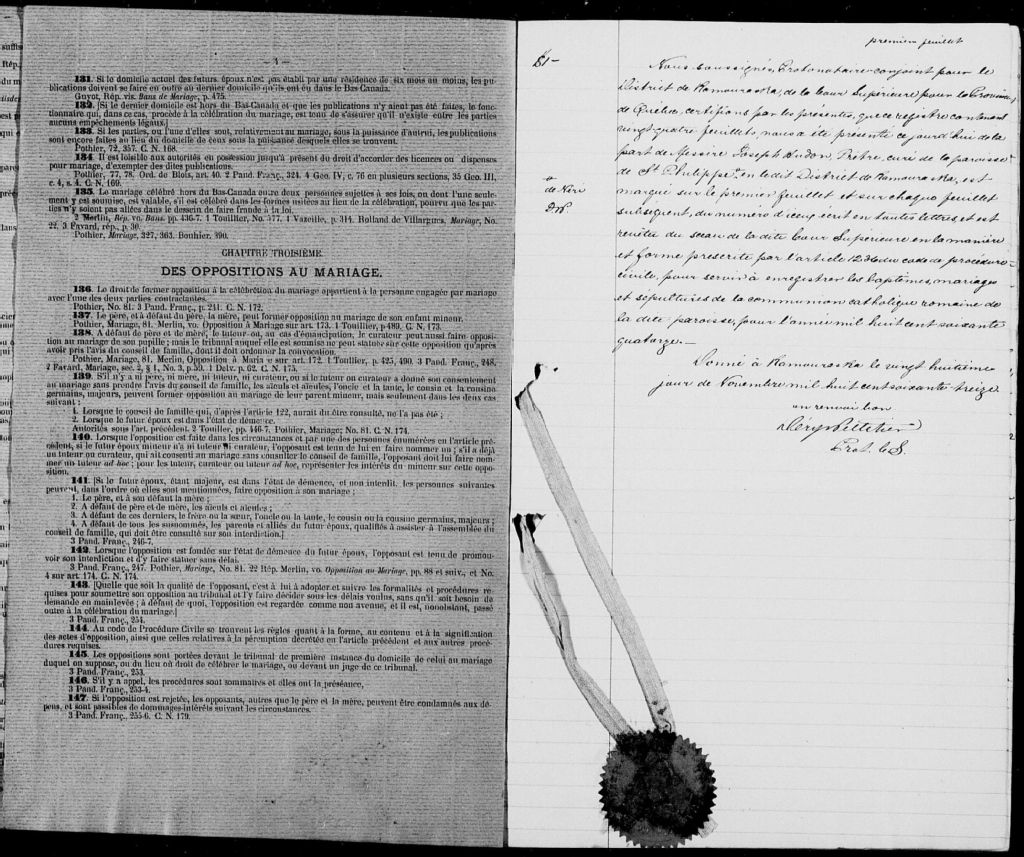 — 4 —
131. Si le domicile actuel des futurs époux n'est pas établi par une résidence de six mois au moins, les pu-
blications doivent se faire en outre au dernier domicile qu'ils ont eu dans le Bas Canada.
Guyot, Rép. vis. Bans de Mariage, p. 475.
132. [Si le dernier domicile est hors du Bas-Canada et que les publications n'y aient pas été faites, le fonc-
tionnaire qui, dans ce cas, procède à la célébration du mariage, est tenu de s'assurer qu'il n'existe entre les parties
aucuns empêchements légaux.]
133. Si les parties, ou l'une d'elles sont, relativement au mariage, sous la puissance d'autrui, les publications
sont encore faites au lieu du domicile de ceux sous la puissance desquels elles se trouvent.
Pothier, 72, 357. C. N. 168.
134. Il est loisible aux autorités en possession jusqu'à présent du droit d'accorder des licences ou dispenses
pour mariage, d'exempter des dites publications.
Pothier, 77, 78. Ord. de Blois, art. 40. 2 Pand. Franç., 324. 4 Geo. IV, c. 76 en plusieurs sections, 35 Geo. III,
c. 4, s. 4. C. N. 169.
135. Le mariage célébré hors du Bas-Canada entre deux personnes sujettes à ses lois, ou dont l'une seule-
ment y est soumise, est valable, s'il est célébré dans les formes usitées au lieu de la célébration, pourvu que les par-
ties n'y soient pas allées dans le dessein de faire fraude à la loi.
2 Merlin, Rép. vo. Bans. pp. 446-7. 1 Toullier, No. 577. 1 Vazeille, p. 314. Rolland de Villargues, Mariage, No.
22, 3 Favard, rép., p. 30.
Pothier, Mariage, 327, 363. Bouhier, 390.
CHAPITRE TROISIÈME.
DES OPPOSITIONS AU MARIAGE.
136. Le droit de former opposition à la célébration du mariage appartient à la personne engagée par mariage
avec l'une des deux parties contractantes.
Pothier, No. 81. 3 Pand. Franç., p. 241. C. N. 172.
137. Le père, et à défaut du père, la mère, peut former opposition au mariage de son enfant mineur.
Pothier, Mariage, 81. Merlin, vo. Opposition à Mariage sur art. 173. 1 Toullier, p. 489. C. N. 173.
138. A défaut de père et de mère, le tuteur ou, au cas d'émancipation, le curateur peut aussi faire opposi-
tion au mariage de son pupille; mais le tribunal auquel elle est soumise ne peut statuer sur cette opposition qu'a-
près avoir pris l'avis du conseil de famille, dont il doit ordonner la convocation.
Pothier, Mariage, 81. Merlin, Opposition à Maria e sur art. 172. 1 Toullier, p. 425, 490. 3 Pand. Franç., 248.
2 Favard, Mariage, sec. 2, § 1, No. 3, p. 59. 1 Delv. p. 62. C. N. 175.
139. S'il n'y a ni père, ni mère, ni tuteur, ni curateur, ou si le tuteur ou curateur a donné son consentement
au mariage sans prendre l'avis du conseil de famille, les aïeuls et aïeules, l'oncle et la tante, le cousin et la cousine
germains, majeurs, peuvent former opposition au mariage de leur parent mineur, mais seulement dans les deux cas
suivant :
1. Lorsque le conseil de famille qui, d'après l'article 122, aurait dû être consulté, ne l'a pas été ;
2. Lorsque le futur époux est dans l'état de démence.
Autorités sous l'art. précédent. 2 Toullier, pp. 446-7. Pothier, Mariage; No. 81. C. N. 174.
140. Lorsque l'opposition est faite dans les circonstances et par une des personnes énumérées en l'article pré-
cédent, si le futur époux mineur n'a ni tuteur ni curateur, l'opposant est tenu de lui en faire nommer un ; s'il a déjà
un tuteur ou curateur, qui ait consenti au mariage sans consulter le conseil de famille, l'opposant doit lui faire nom-
mer un tuteur ad hoc ; pour les tuteur, curateur ou tuteur ad hoc, représenter les intérêts du mineur sur cette oppo-
sition.
141. [Si le futur époux, étant majeur, est dans l'état de démence, et non interdit, les personnes suivantes
peuvent, dans l'ordre où elles sont mentionnées, faire opposition à son mariage ;
1. Le père, et à son défaut la mère ;
2. A défaut de père et de mère, les aïeuls et aïeules ;
3. A défaut de ces derniers, le frère ou la sœur, l'oncle ou la tante, le cousin ou la cousine germains, majeurs ;
4. A défaut de tous les susnommés, les parents et alliés du futur époux, qualifiés à assister à l'assemblée du
conseil de famille, qui doit être consulté sur son interdiction.]
3 Pand. Franç., 246-7.
142. Lorsque l'opposition est fondée sur l'état de démence du futur époux, l'opposant est tenu de promou-
voir son interdiction et d'y faire statuer sans délai.
3 Pand. Franç., 247. Pothier, Mariage, No. 81. 22 Rép. Merlin, vo. Opposition au Mariage, pp. 88 et suiv., et No.
4 sur art. 174. C. N. 174.
143. [Quelle que soit la qualité de l'opposant, c'est à lui à adopter et suivre les formalités et procédures re-
quises pour soumettre son opposition au tribunal et l'y faire décider sous les délais voulus, sans qu'il soit besoin de
demande en mainlevée ; à défaut de quoi, l'opposition est regardée comme non avenue, et il est, nonobstant, passé
outre à la célébration du mariage.]
3 Pand. Franç., 254.
144. Au code de Procédure Civile se trouvent les règles quant à la forme, au contenu et à la signification
des actes d'opposition, ainsi que celles relatives à la péremption décrétée en l'article précédent et aux autres procé-
dures requises.
145. Les oppositions sont portées devant le tribunal de première instance du domicile de celui au mariage
duquel on s'oppose, ou du lieu où doit de célébrer le mariage, ou devant un juge de ce tribunal.
3 Pand. Franç., 253.
146. S'il y a appel, les procédures sont sommaires et elles ont la préséance,
3 Pand. Franç., 253-4.
147. Si l'opposition est rejetée, les opposants, autres que le père et la mère, peuvent être condamnés aux dé-
pens, et sont passibles de dommages-intérêts suivant les circonstances.
3 Pand. Franç., 255-6. C. N. 179.
premier feuillet
Nous soussignés, Protonotaire-conjoint pour le
District de Kamouraska, de la Cour Supérieure pour la Province
de Québec, certifions par les présentes, que ce registre contenant
vingt-quatre feuillets, nous a été présenté ce jourd'hui de la
part de Messire Joseph Hudon, Prêtre, curé de la paroisse
* de St Philippe, en le dit District de Kamouraska, est
marqué sur le premier feuillet et sur chaque feuillet
subséquent, du numéro d'icelui écrit en toutes lettres, et est
revêtu du sceau de la dite Cour Supérieure en la manière
et forme prescrite par l'article 1236 du code de procédure
civile, pour servir à enregistrer les baptêmes, mariages
et sépultures de la communion catholique romaine de
la dite paroisse, pour l'année mil huit cent soixante
quatorze.—
* de Néri
Donné à Kamouraska le vingt huitième
jour de Novembre mil huit cent soixante treize
un renvoi bon
Déry & Pelletier
Prot. C.S.